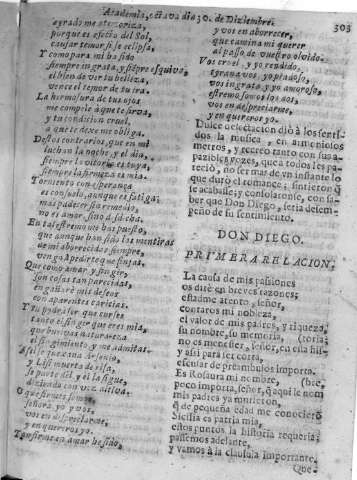 Academia, octava dia 30. de Diziembre. 303
ayrado me atemoriza,
porque es efeto del Sol,
causar temor si se eclipsa,
Y como para mi ha sido
siempre ingrata, y siẽpre esquiva,
el bien de ver tu belleza,
vence el temor de tu ira.
La hermosura de tus ojos
me compele à que te sirva,
y tu condicion cruel,
a que te dexe me obliga.
Destos contrarios, que en mi
luchan la noche, y el dia,
siempre la vitoria es tuya,
siempre la firmeza es mia.
Tormento con esperança
es consuelo, aunque es fatiga;
mas padecer sin remedio,
no es amor sino
En tal estremo me has puesto,
que aunque han sido las mentiras
de mi aborrecidas siempre,
vengo à pedir que finjas.
Que como amar, y fingir,
son cosas tan parecidas,
engañarè mis deseos
con aparentes caricias.
Y tu podràs
tanto el fingir que eres mia,
que buenas naturaleza
el fingimiento, y me admitas.
Assi se quexava Arsenio,
y Lisi muerta de risa,
se parte del, y èl la sigue,
diziendo con voz altiva.
O que firmes somos,
señora, yo y vos,
vos en despreciarme,
y en quereros yo.
Tan firme en amar he sido,
y vos en aborrecer,
que camina mi querer
al passo de vuestro olvido.
Vos cruel, y yo rendido,
tyrana vos, yo postrado,
vos ingrata, y yo amoroso,
estremo somos los dos,
vos en despreciarme,
y en quereros yo.
Dulce delectacion diò à los senti-
dos la musica, en armoniosos
metros, y recreo tanto con suaa-
pazibles vozes, que a todos les pa-
reciò, no ser mas de un instante lo
que durò el romance; sintieron q̃
se acabasse, y consolaronse, con sa-
ber que Don Diego, seria desem-
peño de su sentimiento.
DON DIEGO.
PRIMERA RELACION.
La causa de mis passiones
os dirè en breves razones;
estadme atento, señor,
contaros mi nobleza,
el valor de mis padres, y riqueza,
su nombre, su memoria, (toria;
no es menester, señor, en esta his-
y assi para ser corta,
escusar de preambulos importa.
Es Rosaura mi nombre, (bre,
poco importa, señor, q̃ aqui le nom
mis padres ya murieron,
q̃ de pequeña edad me conocierõ
Sicilia es patria mia,
estos puntos la historia requeria;
passemos adelante,
y vamos à la clausula importante.
Que